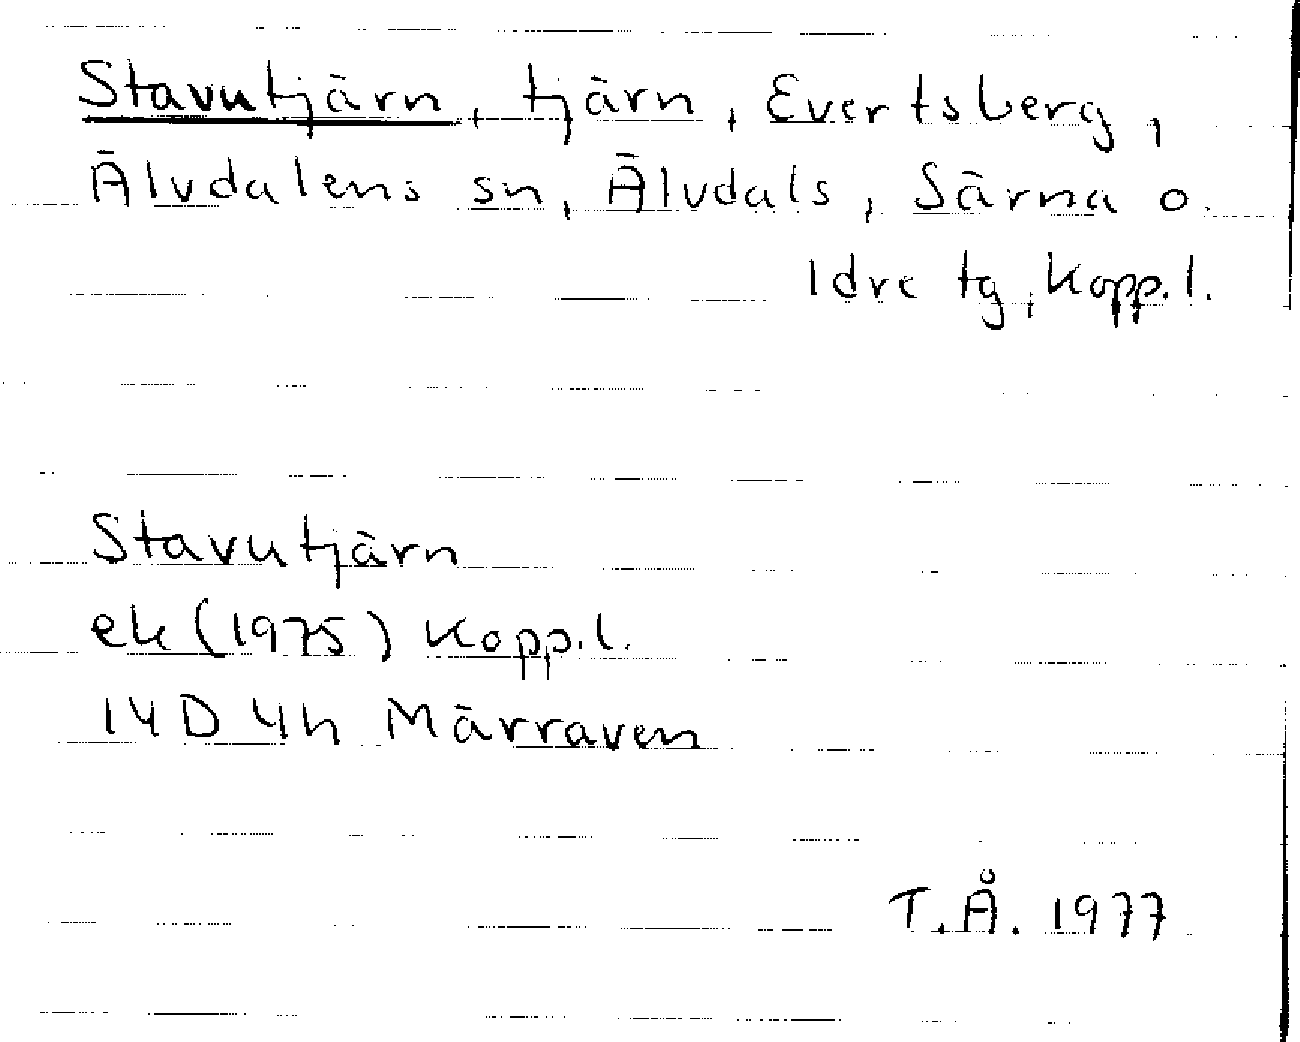 Stavutjärn, tjärn, Evertsberg,
Älvdalens sn, Älvdals, Särna o.
Idre tg, Kopp.l.
Stavutjärn
ek (1975) Kopp.l.
14D 4h Märraven
T.Å. 1977